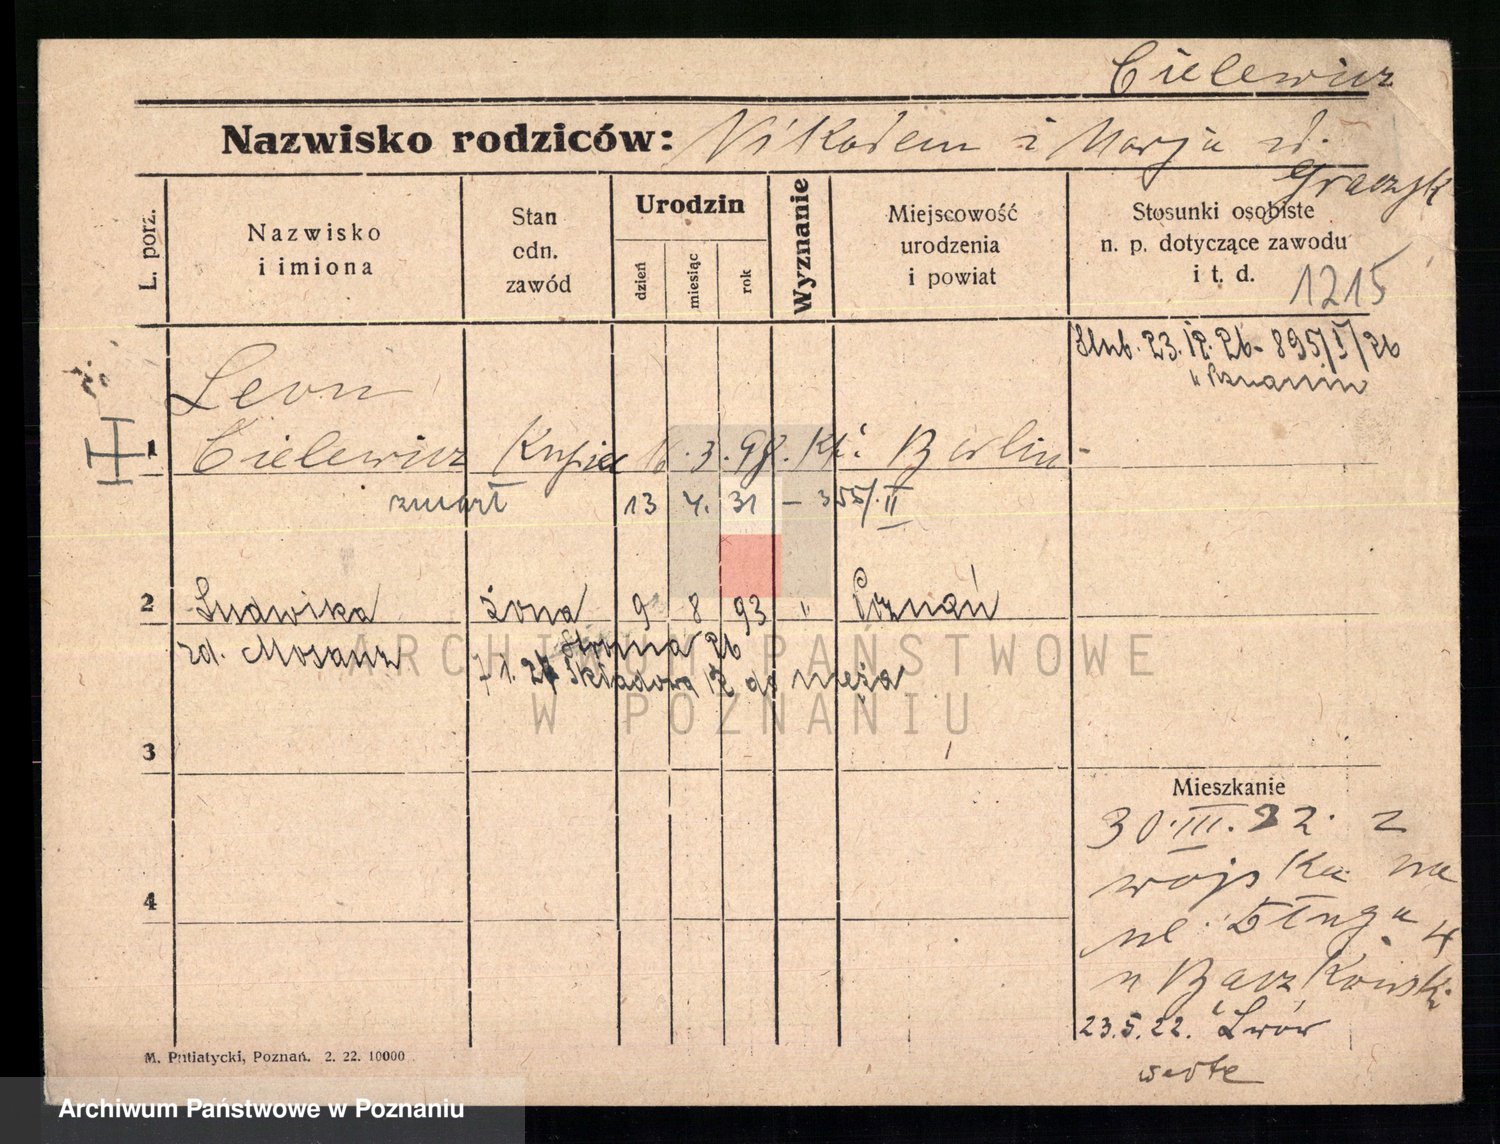 Cielewicz
Nazwisko rodziców: Nikodem i Marja zd.
Graczyk
L. porz.
Nazwisko
i imiona
Stan
cdn.
zawód
Urodzin
dzień
miesiąc
rok
Wyznanie
Miejscowość
urodzenia
i powiat
Stosunki osobiste
n. p. dotyczące zawodu
i t. d.
1215
Ślub. 23. IX. 26 - 895/I/26
w Poznaniu
Leon
1 Cielewicz Kupiec 16. 3. 98. Kt. Berlin
zmarł 13 4. 31 - 355/II
2 Ludwika żona 9 8 93 " Poznań
zd. Mosanz
Stroma 26
7 1. 27 Składowa 12 do męża
3
Mieszkanie
30. III. 22. z
wojska na
ul. Długa 4
u Baczkowski
23.5.22. Lwów
4
M. Putiatycki, Poznań. 2. 22. 10000
ARCHIWUM PAŃSTWOWE
W POZNANIU
Archiwum Państwowe w Poznaniu